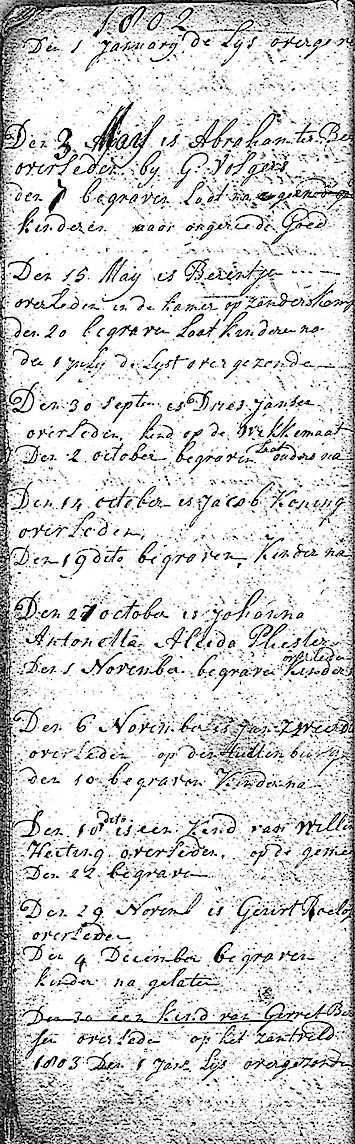 1802
Den 1 January de Lys overge
Den 3 May is Abraham te Be
overleden by G
den 7 begraven laat na
kinderen onroerede Goed
Den 15 May is Berentje
overleden in de kamer op zanders kamp
den 20 begraven laat kinderen na
den 1 July de Lyst overgezonde
Den 30 septem is Dries Jansen
overleden, kind op de
Den 2 october begraven laat ouders na
Den 14 october is Jacob Koning
overleden,
Den 19 dito begraven, Kinder na
Den 27 october is Johanna
Antonetta Aleida Pliester
overleden
Den 1 November begraven kinders
Den 6 November is Jan
overleden op den
den 10 begraven Kinder na
Den 18 dito is een kind van Wille
Heiting overleden, op de
Den 22 begraven
Den 29 Novem is Gerrt Roelof
overleden
Den 4 December begraven
kinder na gelaten
Den 30 een kind van Gerret Be
sen overleden op het zantveld
1803 Den 1 Jan Lys overgezonde